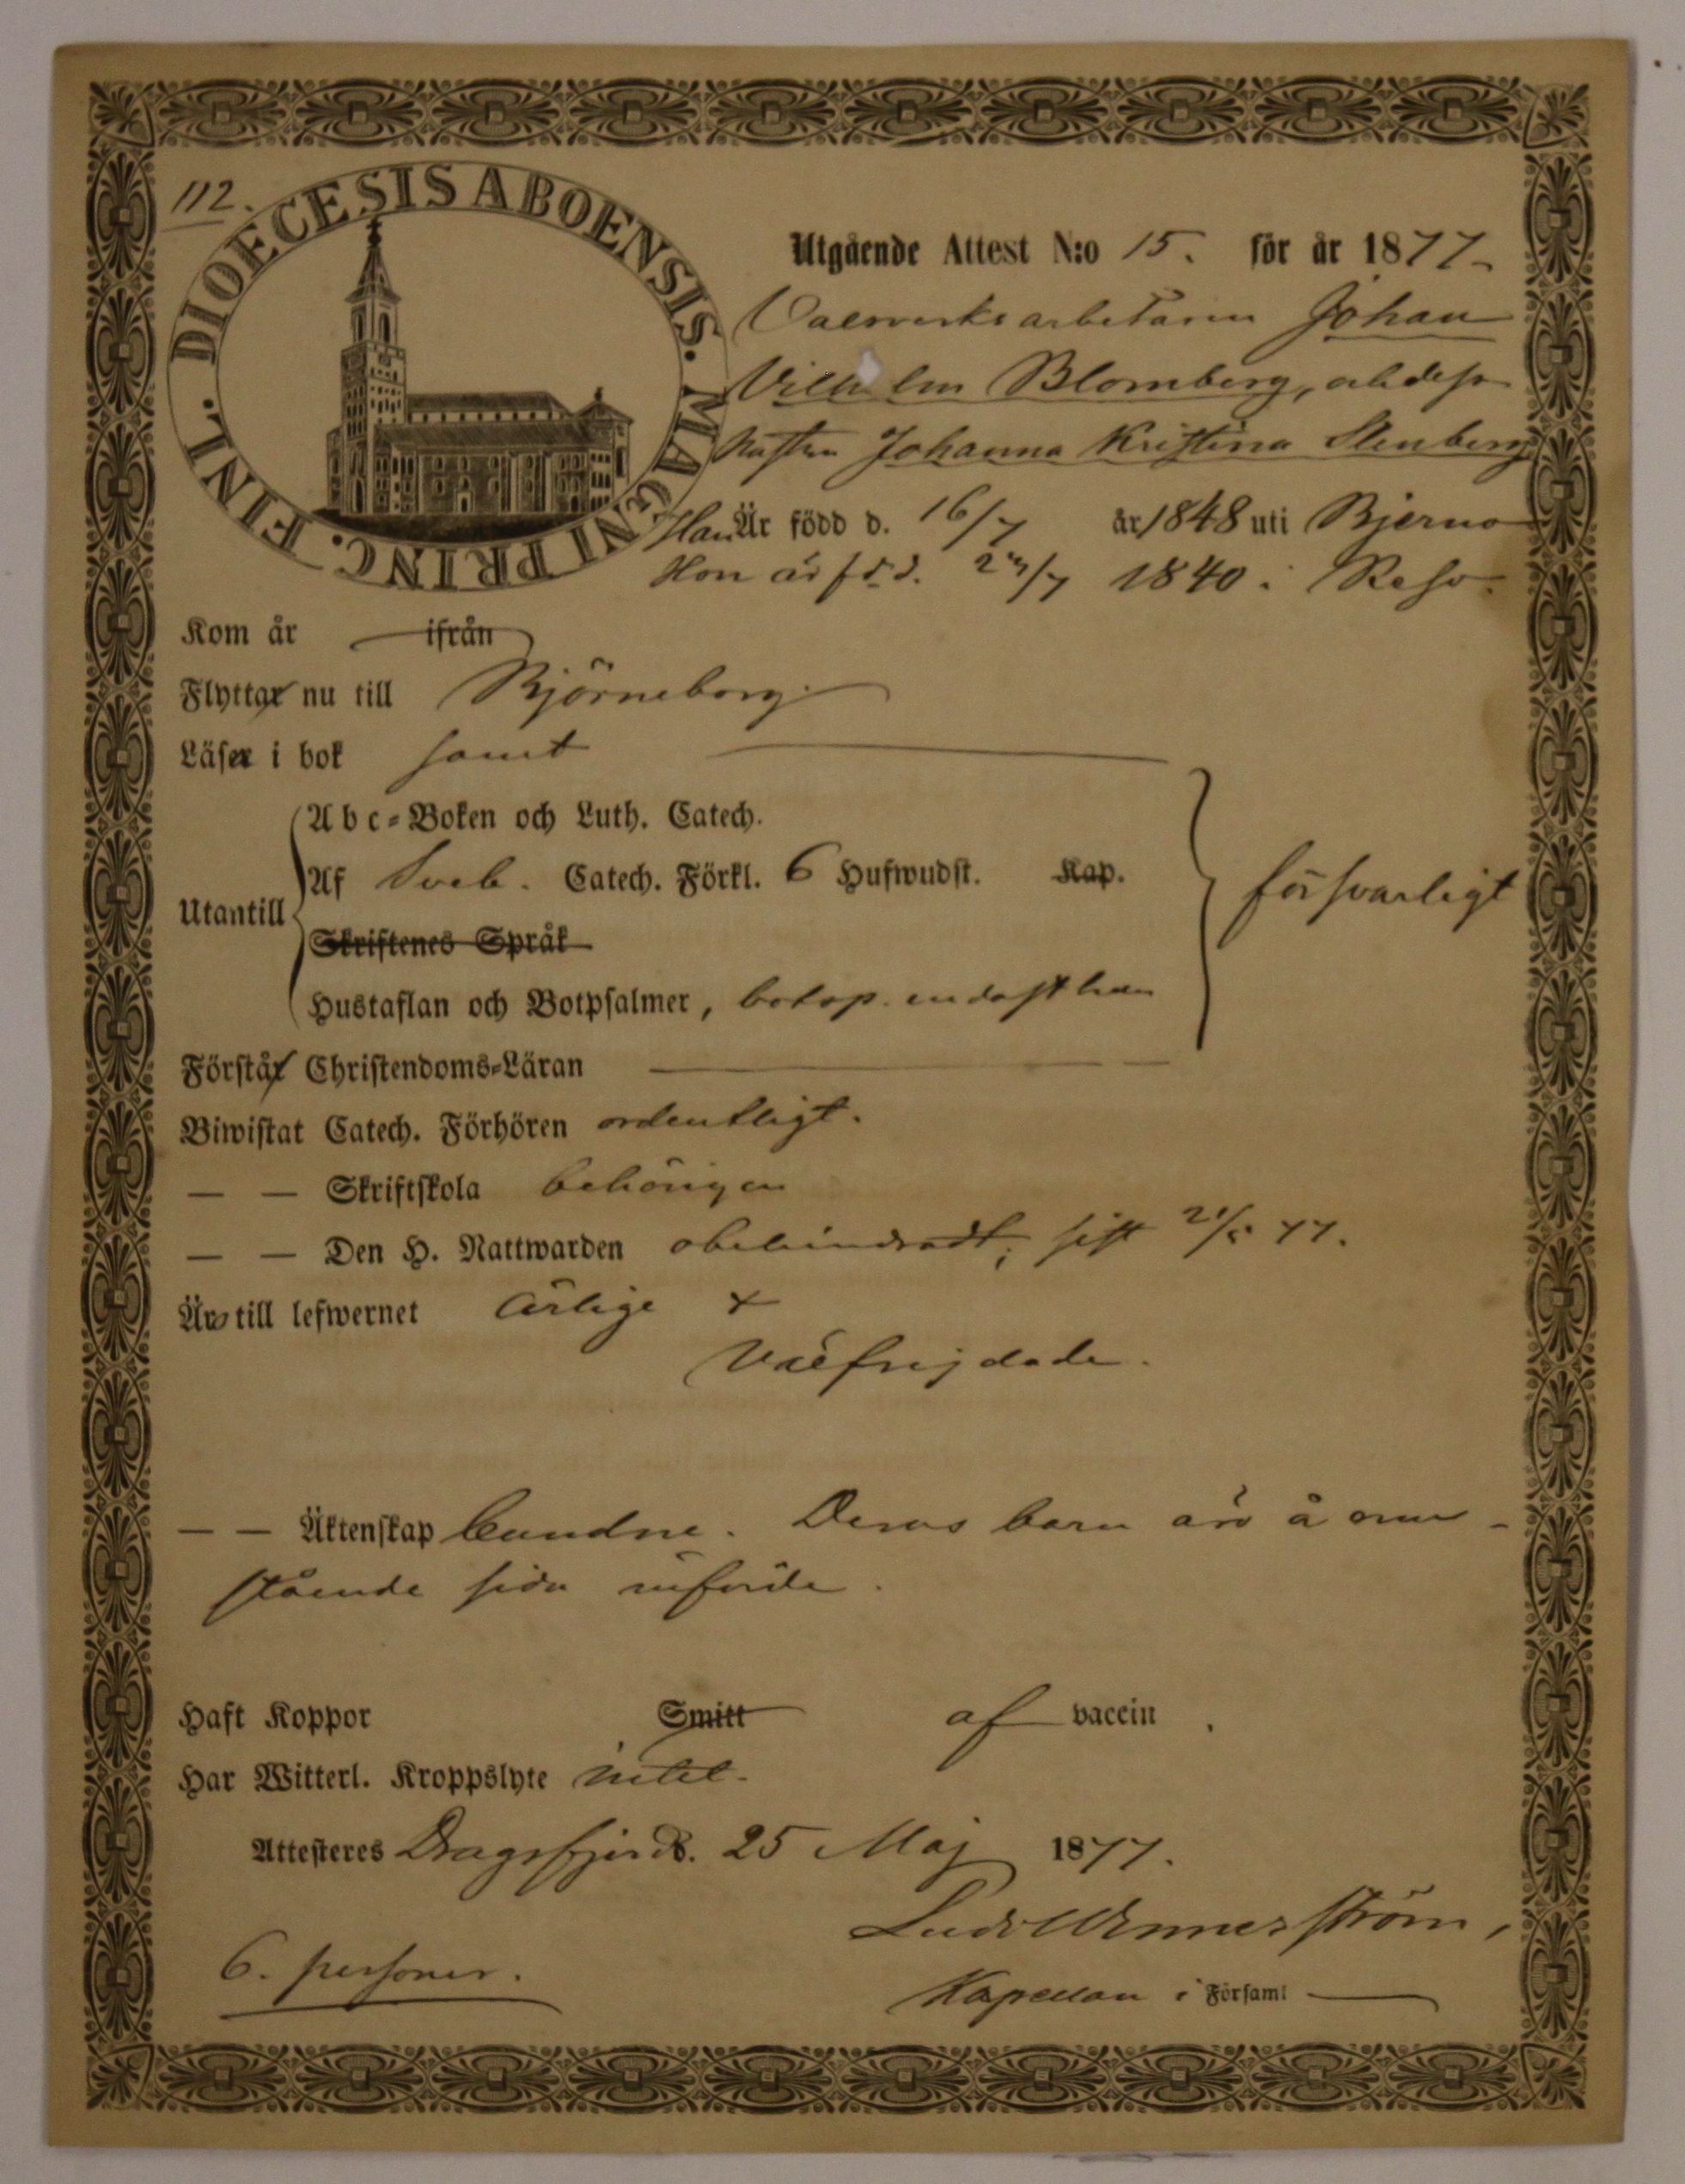 112.
DIOECESIS ABOENSIS. MAGNI PRINC. FINL.
Utgående Attest N:o 15. för år 1877
Valsverksarbetaren Johan
Vilhelm Blomberg, och dess
hustru Johanna Kristina Stenberg
Han Är född d. 16/7 år 1848 uti Bjerno
Hon är född. 1840 i Reso.
Kom år ifrån
Flyttar nu till Björneborg.
Läser i bok samt
Abc-Boken och Luth. Catech.
Utantill
Af Sveb. Catech. Förkl. 6 Hufwudst. Kap.
försvarligt
Skriftenes Språk
Hustaflan och Botpsalmer, botsp. endast han
Förstår Christendoms-Läran
Biwistat Catech. Förhören ordentligt.
— — Skriftskola behörigen
— — Den H. Nattwarden obehindradt; sist 21/5 77.
Äro till lefwernet ärlige +
välfrejdade.
— — Äktenskap bundne. Deras barn äro å om-
stående sida införde.
Haft Koppor Smitt af vaccin.
Har Witterl. Kroppslyte intet.
Attesteres Dragsfjerd d. 25 Maj 1877.
Ludv Wennerström,
6. personer.
Kapellan i Församl